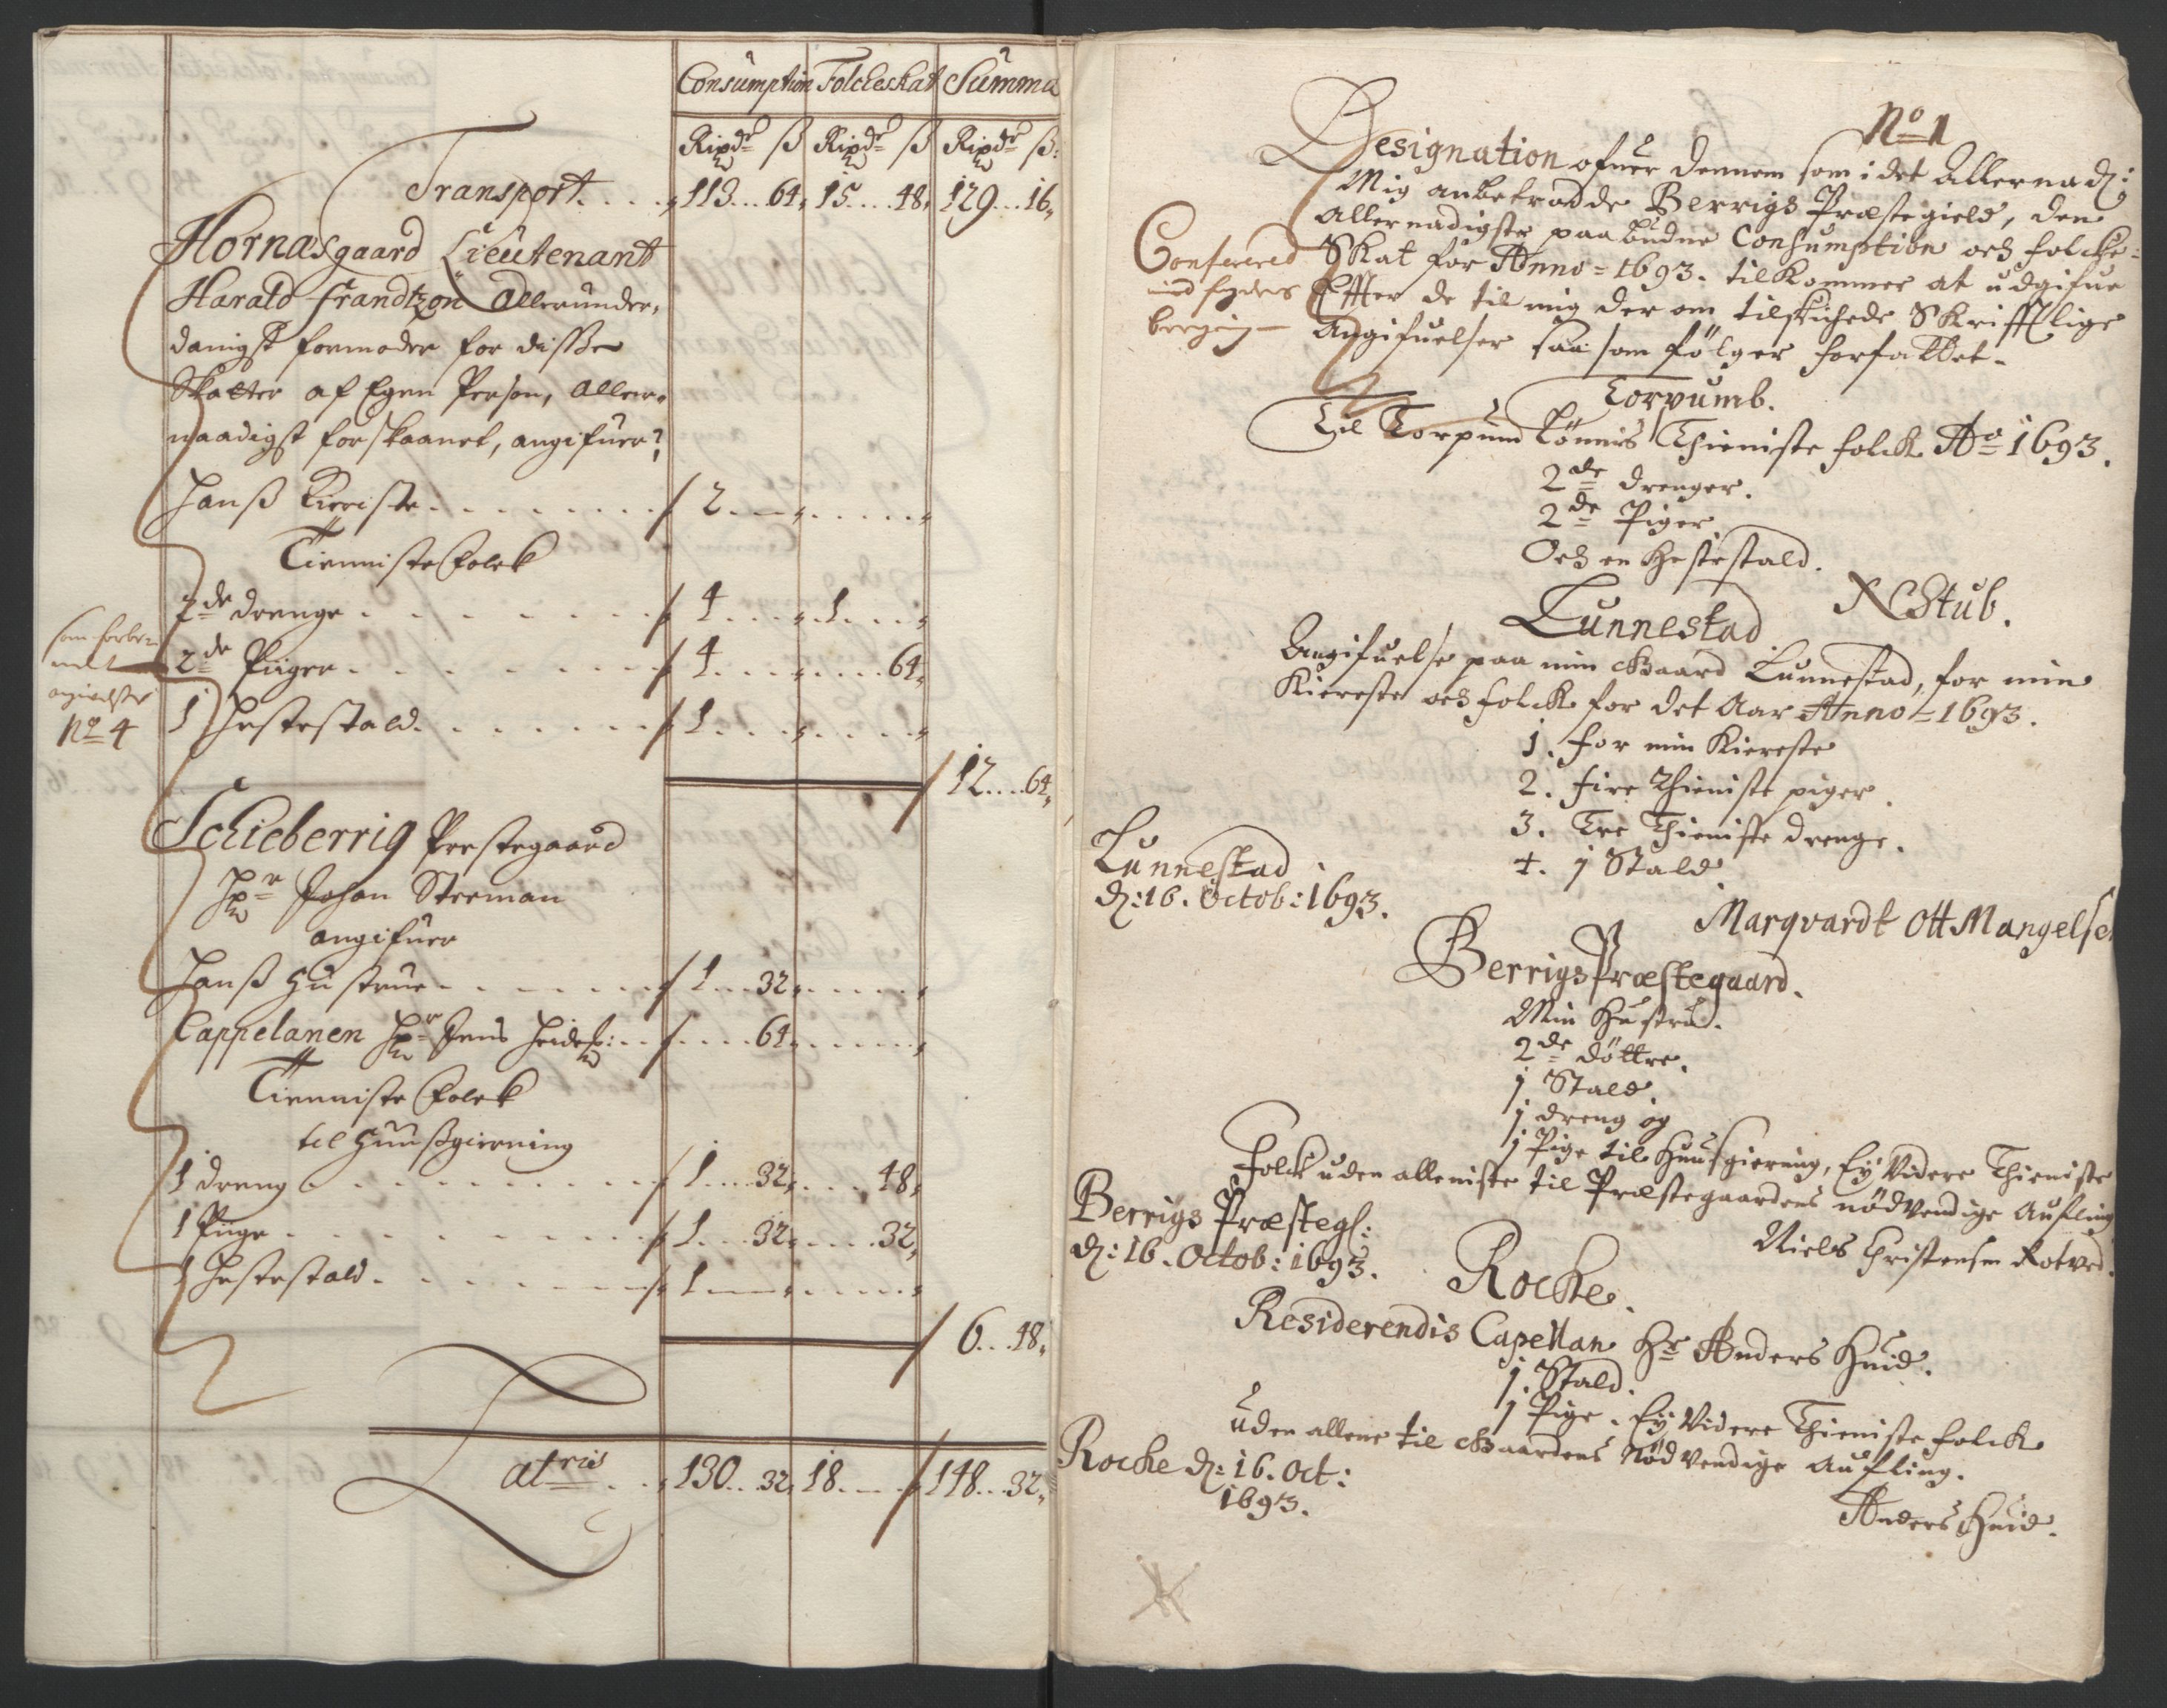 Consumption Folcheskat Summa
Rixdr ß Rixdr ß Rixdr ß:
Transport. . . . 113...64, 15....48, 129...16,
Hornæsgaard Lieutenant
Harald Frandtzøn Allerunder,
danigst formoder for disse
Skatter af Egen Person, Aller,
naadigst forskaanet, angifuer?
Hanß Kieriste . . . . . . . . 2
Tienniste Folck
2de drenge . . . . . . . . 4 . . . . 1 . . . .
som forbe-
melt
angivelse
No 4
2de Piiger . . . . . . . 4 . . . . . . . . 64,
1 Hestestald . . . . . . . 1 . . . .
12....64,
Schieberrig Prestegaard
Hr Johan Steeman
angifuer
Hanß Hustrue . . . . . . . 1...32,
Cappelanen Hr Jens : . . . . . . 64
Tienniste Folck
til Huußgierning
1 dreng . . . . . . . . . 1....32, . . . 48,
1 Piige . . . . . . . . . 1....32, . . . 32,
1 Hestestald . . . . . . . . 1
6...48,
Latris . . 130...32, 18. 148...32,
No 1
Designation ofuer dennem som i det Allernad:
Mig anbetrodde Berrigs Præstegield, den
Allernadigste paabudne Consumption och folcke=
Skat for Anno=1693. tilkommer at udgifue
Effter de til mig der om tilskickede Skrifftlige
Angifuelser saa som følger forfattet.
Confereret
Torpumb.
Til Torpum Lømis Thieniste folck Ao 1693.
2de drenger.
2de Piger
Och en Hestestald.
N Stub.
Lunnestad
Angifuelse paa min Gaard Lunnestad, for min
Kiereste och folck for det Aar Anno=1693.
1. for min Kiereste
2. fire Thieniste piger.
3. Tre Thieniste drenge.
4. 1 Stald
Lunnestad
d: 16. Octob: 1693.
Marqvardt Ott Mangelse
Berrigs Præstegaard.
Min Hustru.
2de døttre.
1 Stald.
1 dreng og
1 Pige til Huusgierning, Ey Videre Thieniste
Folck uden alleniste til Præstegaardens nødvendige Aufling
Berrigs Præstegl:
d: 16. Octob: 1693.
Niels Christensen Rotved.
Rocke.
Residerendis Capellan Hr Anders Huid.
1. Stald.
1 Pige. Ey Videre Thieniste folck
uden allene til Gaardens Nødvendige Aufling.
Rocke d: 16. Oct:
1693.
Anders Huid.